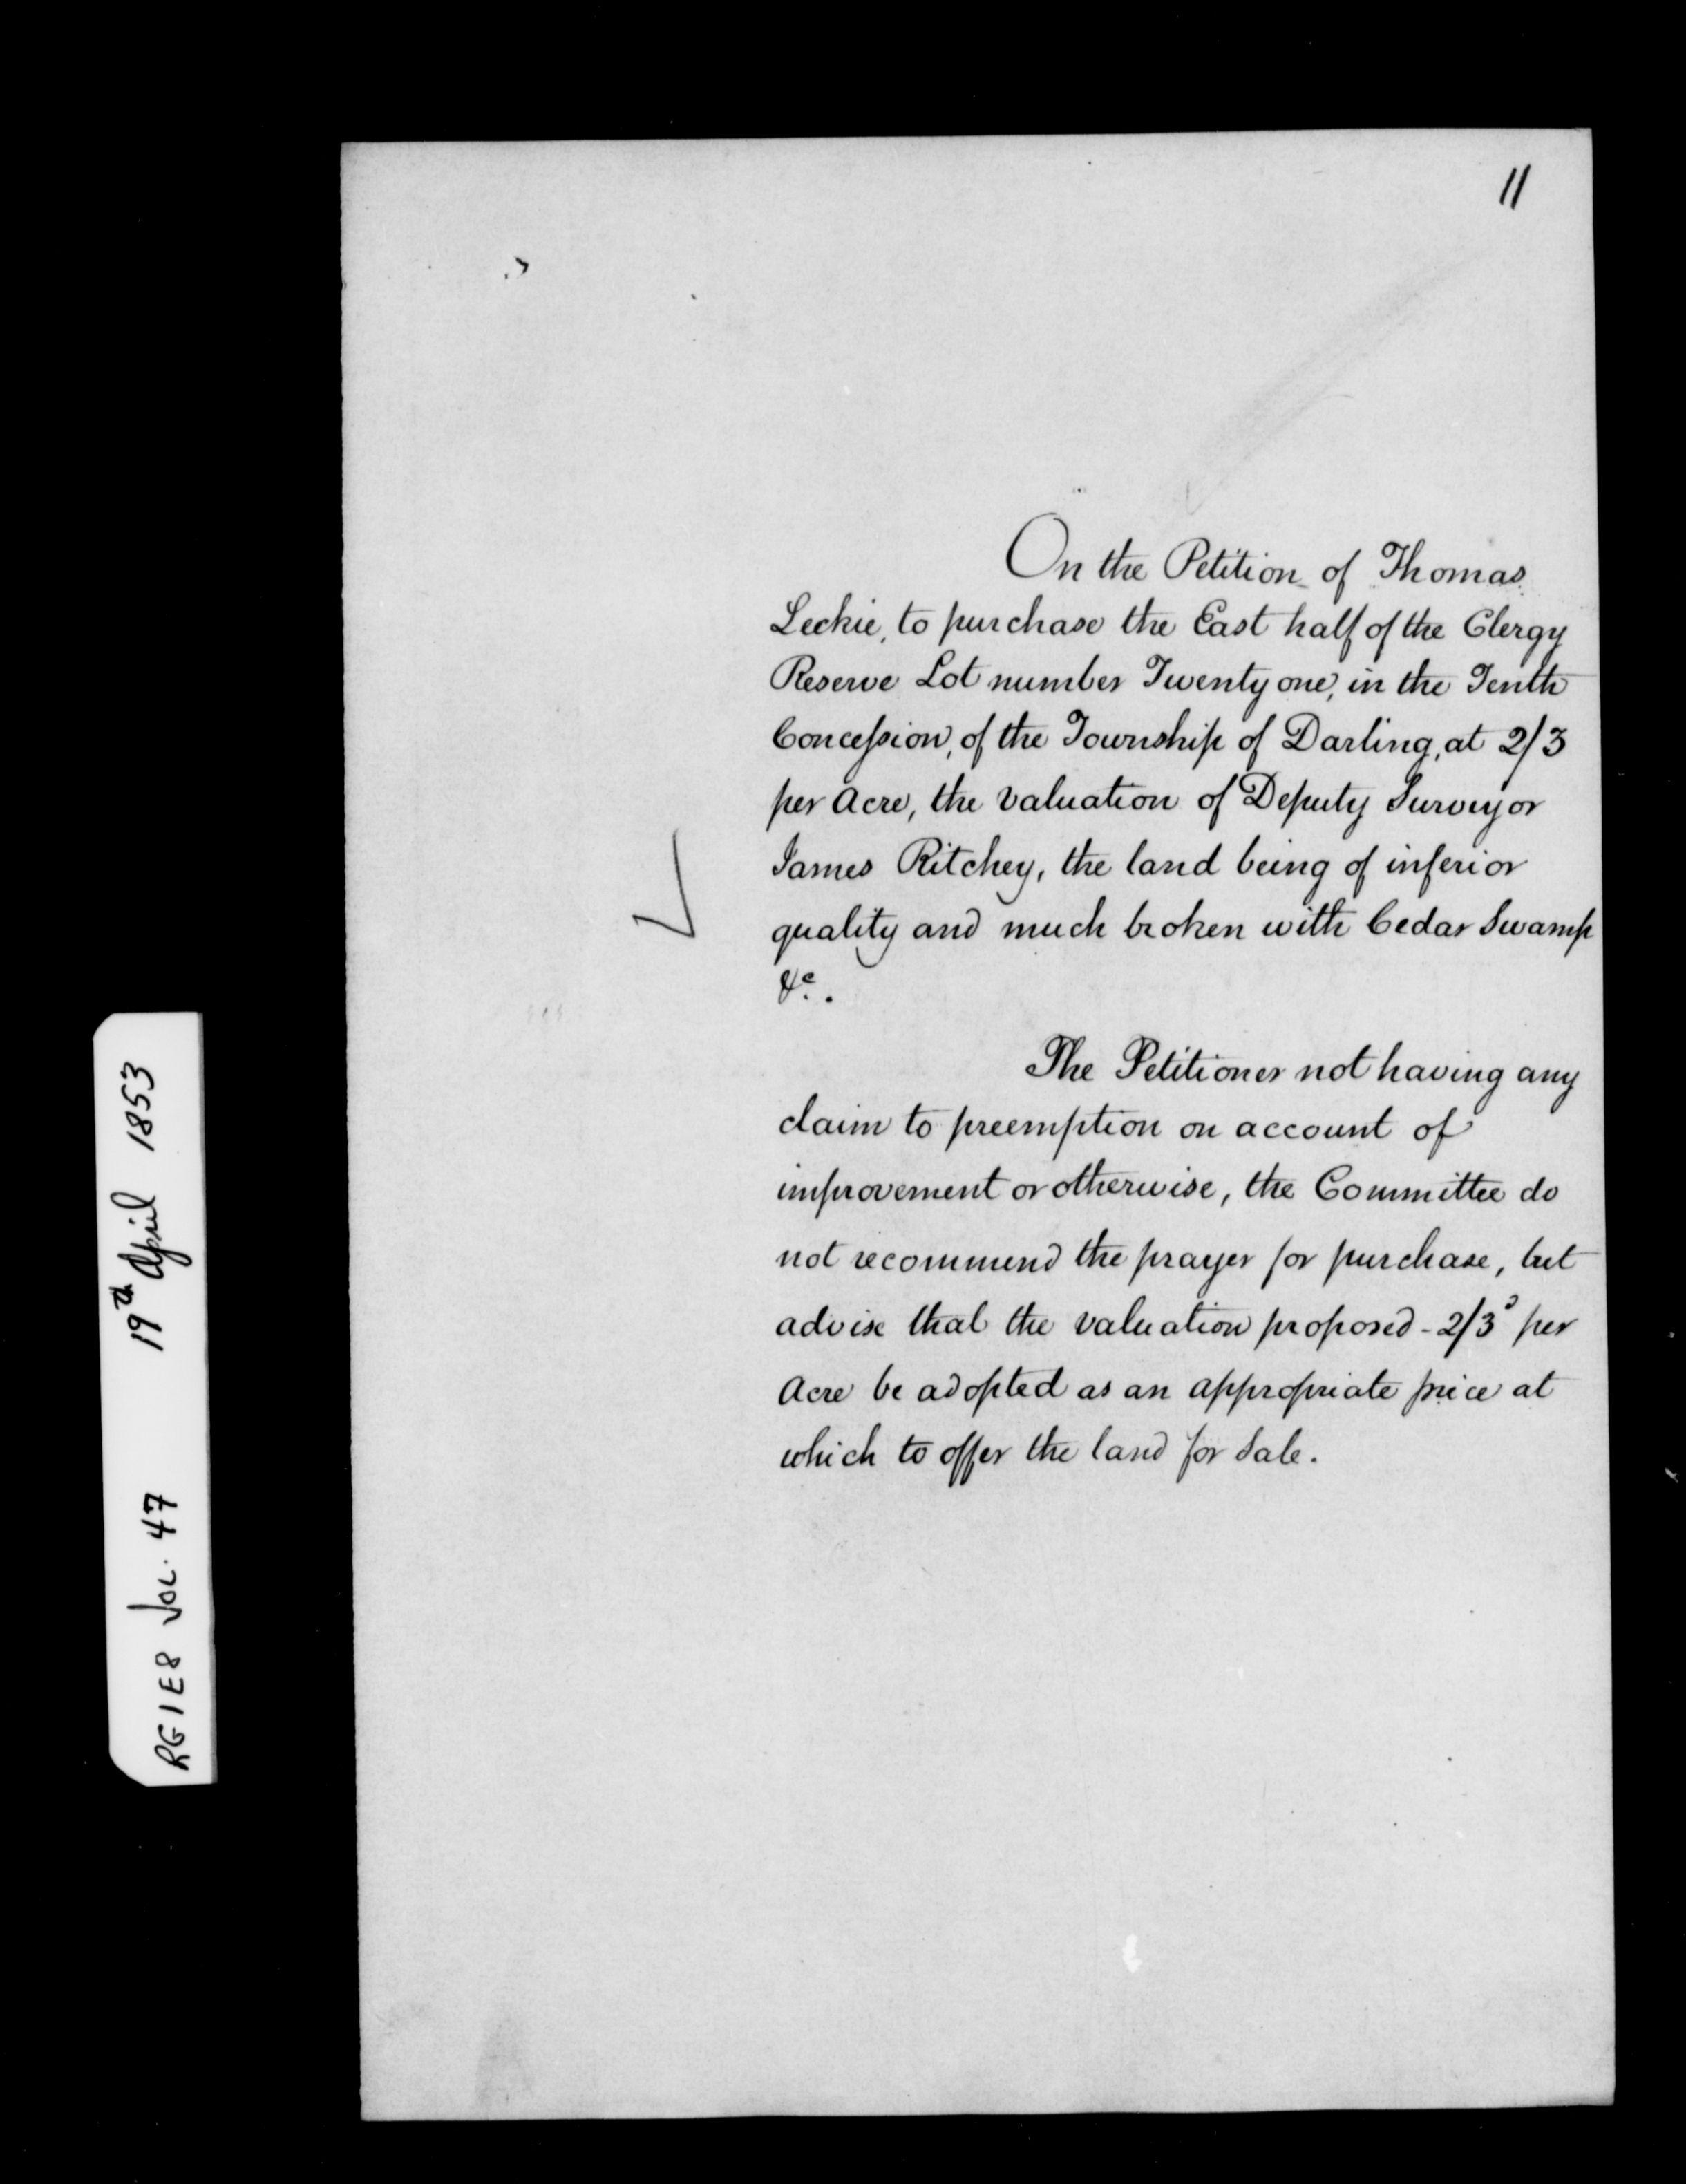 11
On the Petition of Thomas
Leckie, to purchase the East half of the Clergy
Reserve Lot number Twenty one, in the Tenth
Concession, of the Township of Darling, at 2/3
per Acre, the valuation of Deputy Surveyor
James Ritchey, the land being of inferior
quality and much broken with Cedar Swamp
&c.
The Petitioner not having any
claim to preemption on account of
improvement or otherwise, the Committee do
not recommend the prayer for purchase, but
advise that the valuation proposed - 2/3d per
Acre be adopted as an appropriate price at
which to offer the land for Sale.
RG1E8 VOL. 47 19th April 1853